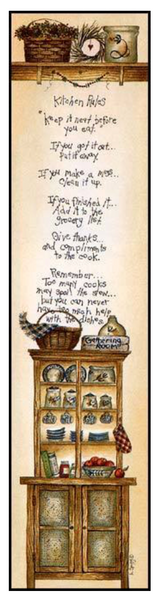 Kitchen Rules
Keep it neat before
you eat.
If you got it out...
put it away.
If you make a mess...
clean it up.
If you finished it...
Add it to the
grocery list.
Give thanks...
and compliments
to the cook.
Remember...
Too many cooks
may spoil the stew...
but you can never
have too much help
with the dishes.
Gathering
ROOM